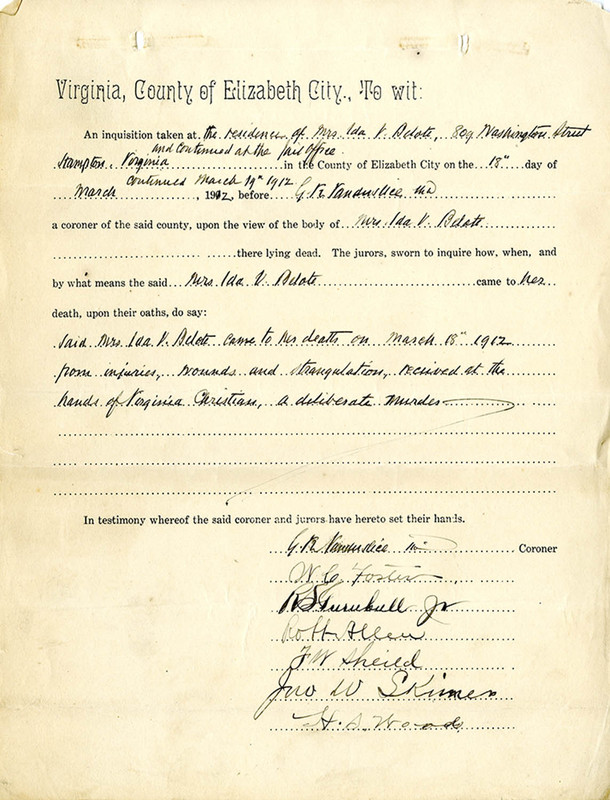 Virginia, County of Elizabeth City., To wit:
An inquisition taken at the residence of Mrs. Ida V. Belote, 809 Washington Street
and continued at the Jail Office
Hampton, Virginia in the County of Elizabeth City on the 18" day of
continued March 19th 1912
March 1912, before G. K. Vanderslice MD
a coroner of the said county, upon the view of the body of Mrs. Ida V. Belote
there lying dead. The jurors, sworn to inquire how, when, and
by what means the said Mrs. Ida V. Belote came to her
death, upon their oaths, do say:
Said Mrs. Ida V. Belote came to her death on March 18" 1912
from injuries, wounds and strangulation, received at the
hands of Virginia Christian, a deliberate murder
In testimony whereof the said coroner and jurors have hereto set their hands.
G. K. Vanderslice MD Coroner
W. C. Foster
R S Turnbull Jr
Robt Allen
F W Sheild
Jno W Skinner
H. S. Woods